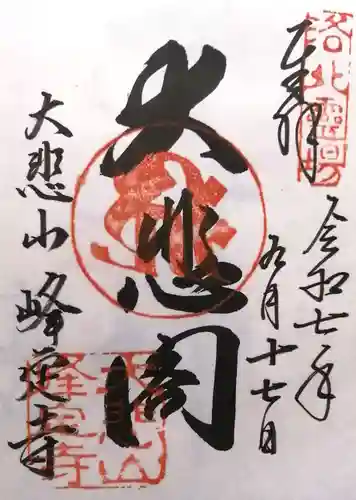 奉拝
洛北霊場
令和七年
九月十七日
大悲閣
大悲山
峰定寺
大悲山
峰定寺